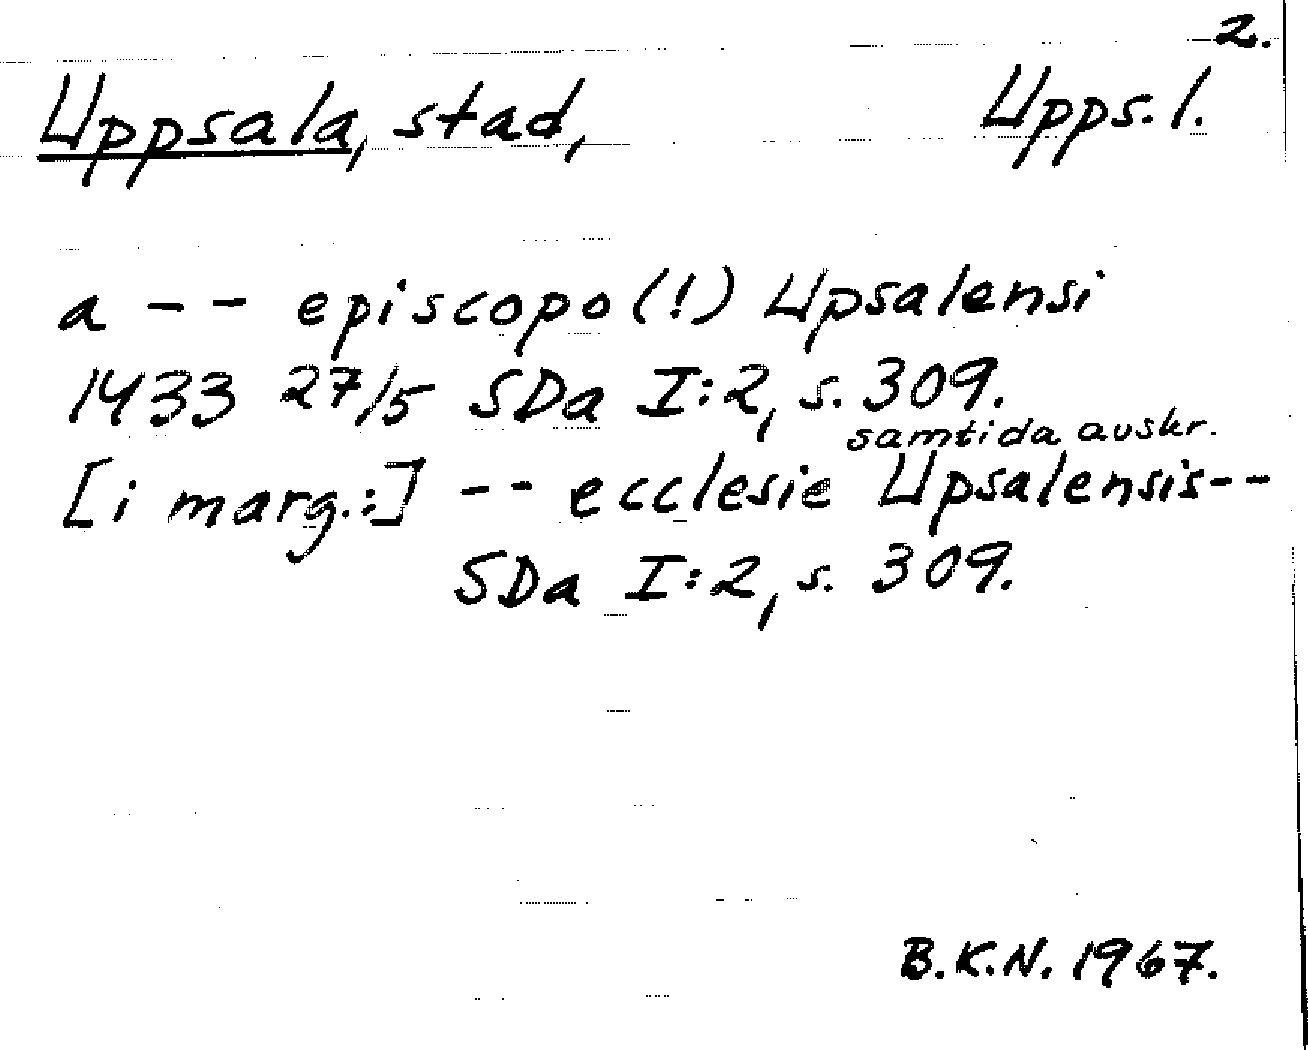 2.
Uppsala, stad, Upps. l.
a -- episcopo (!) Upsalensi
1433 27/5 SDa I:2, s. 309.
samtida avskr.
[i marg.:] -- ecclesie Upsalensis --
SDa I:2, s. 309.
B.K.N. 1967.